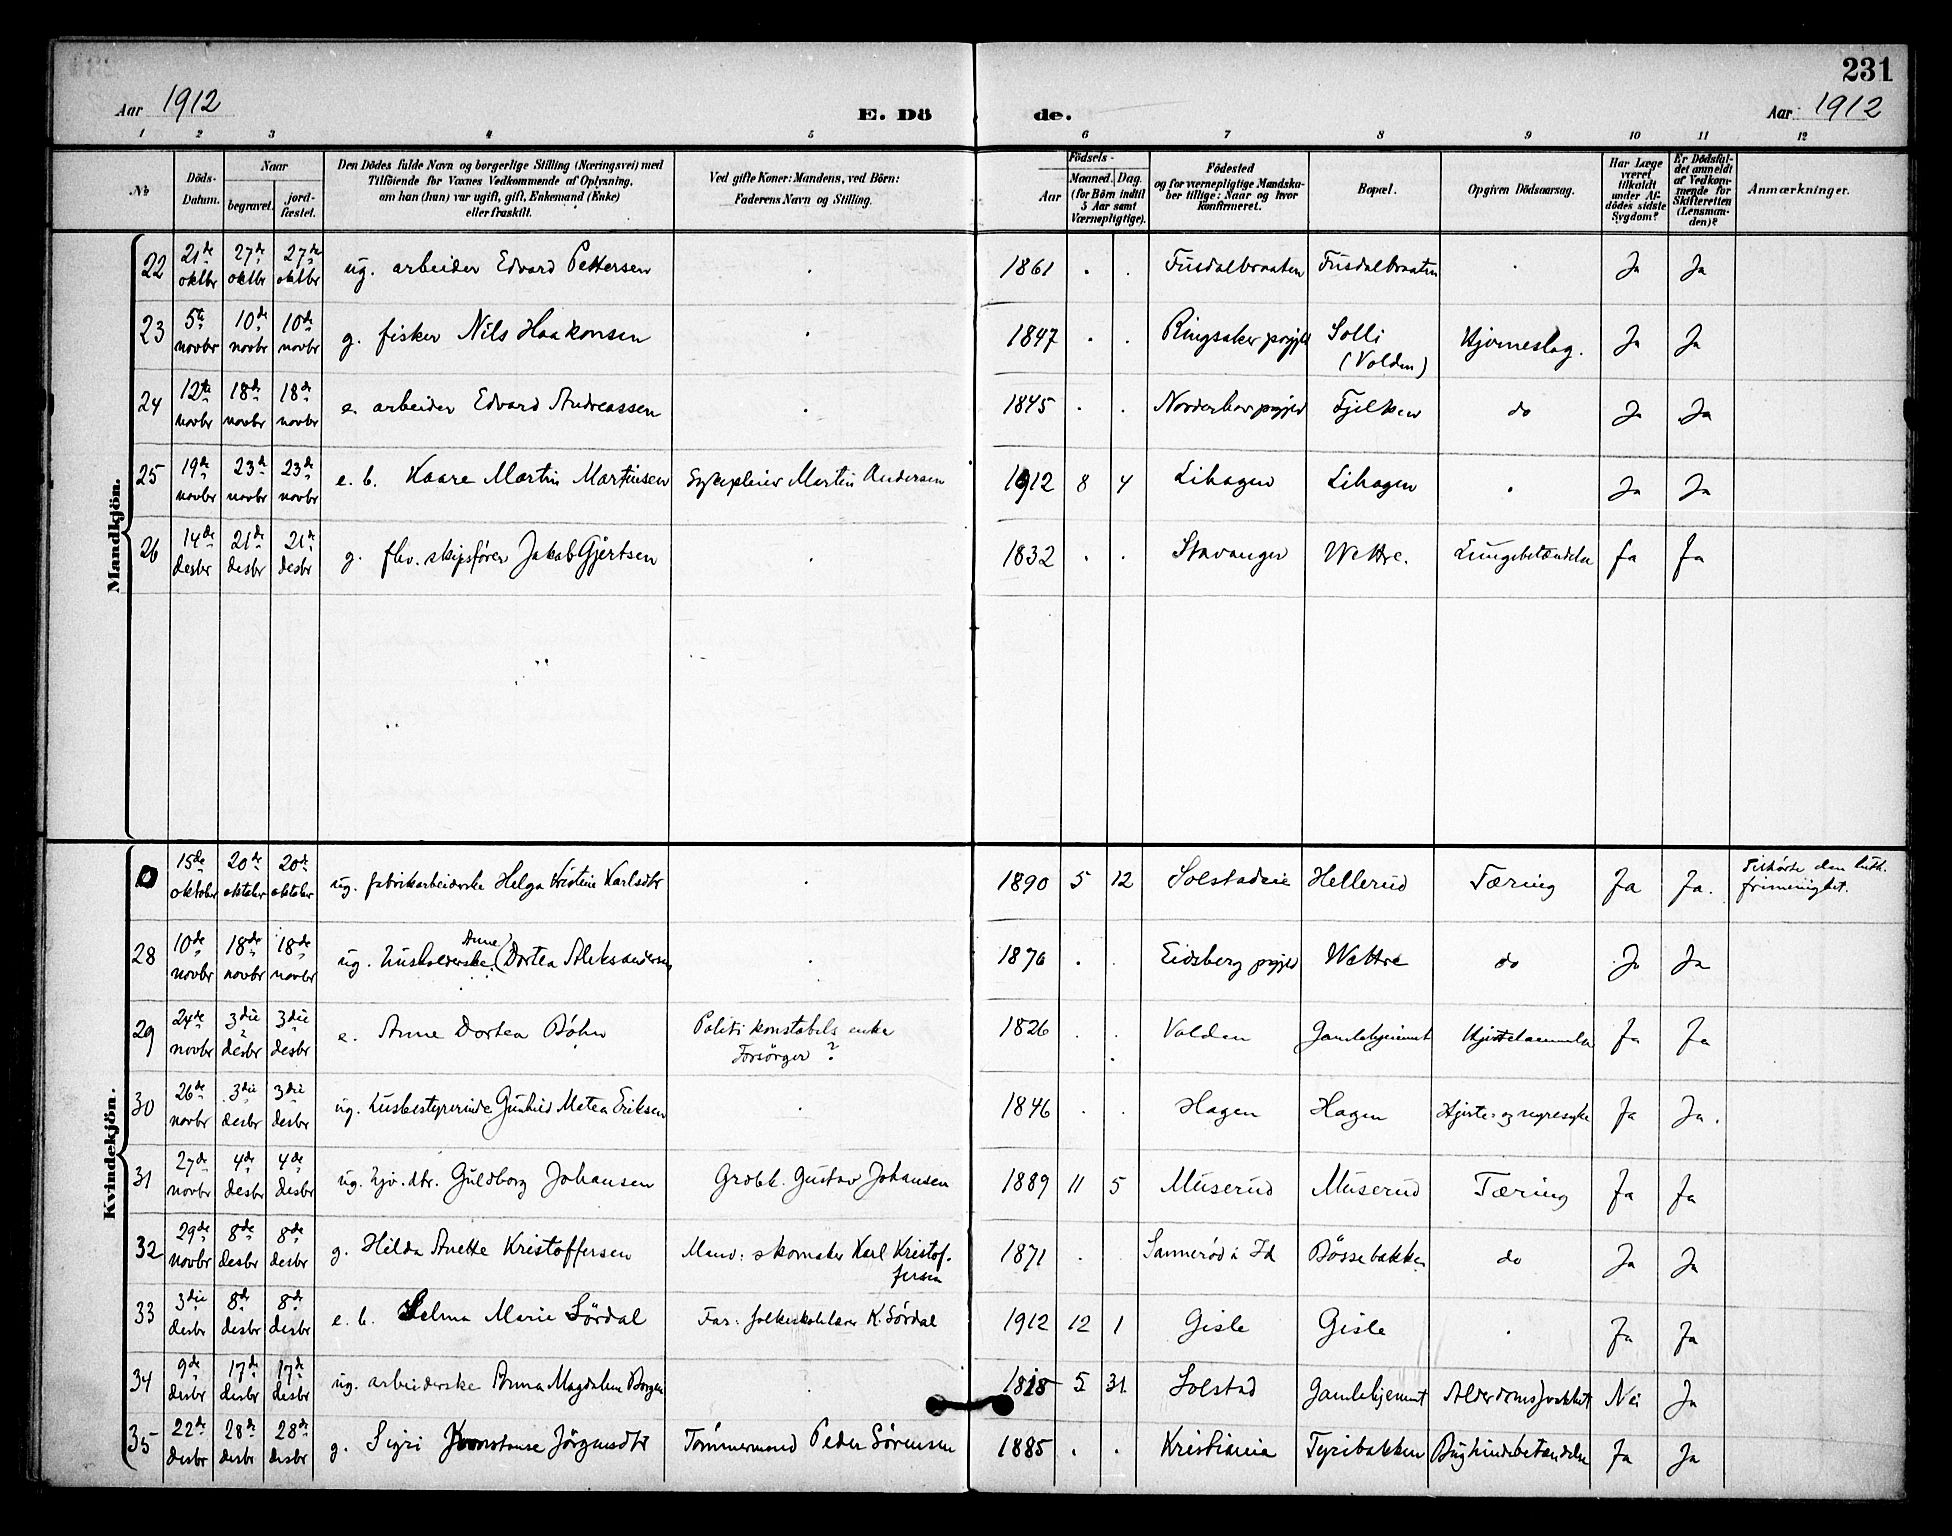 231
Aar 1912 E. Dö de. Aar 1912
1 2 3 4 5 6 7 8 9 10 11 12
No Döds-Datum. Naar begravet. jordfæstet. Den Dödes fulde Navn og borgerlige Stilling (Næringsvei) med Tilföiende for Voxnes Vedkommende af Oplysning, om han (hun) var ugift, gift, Enkemand (Enke) eller fraskilt. Ved gifte Koner: Mandens, ved Börn: Faderens Navn og Stilling. Födsels- Aar Maaned. Dag. (for Börn indtil 5 Aar samt Værnepligtige). Födested og for værnepligtige Mandskaber tillige: Naar og hvor konfirmeret. Bopæl. Opgiven Dödsaarsag. Har Læge været tilkaldt under Afdödes sidste Sygdom? Er Dödsfaldet anmeldt af Vedkommende for Skifteretten (Lensmanden)? Anmærkninger.
Mandkjön.
22 21de oktbr 27de oktbr 27de oktbr ug. arbeider Edvard Pettersen . 1861 . . Fusdalbraaten Fusdalbraaten . Ja Ja
23 5te novbr 10de novbr 10de novbr g. fisker Nils Haakonsen . 1847 . . Ringsaker prgjld Solli (Volden) Hjerneslag. Ja Ja
24 12te novbr 18de novbr 18de novbr e. arbeider Edvard Andreassen . 1845 . . Norderhov prgjld do Ja Ja
25 19de novbr 23de novbr 23de novbr e. b. Kaare Martin Martinsen Sykepleier Martin Andersen 1912 8 4 Lihagen Lihagen . Ja Ja
26 14de desbr 21de desbr 21de desbr g. fhv. skipsfører Jakob Gjertsen . 1832 . . Stavanger Wettre. Lungebetændelse Ja Ja
Kvindekjön.
15de oktober 20de oktober 20de oktober ug. fabrikarbeiderske Helga Kristine Karlsdtr . 1890 5 12 Solstadeie Hellerud Tæring Ja Ja. Tilhörte den luth. frimenighet.
28 10de novbr 18de novbr 18de novbr ug. husholderske (Anne) Dortea Aleksandersen . 1876 . . Eidsberg prgjld Wettre do Ja Ja
29 24de novbr 3die desbr 3die desbr e. Anne Dortea Böhn Politikonstabels enke Forsörger? 1826 . . Volden Gamlehjemmet Ja Ja
30 26de novbr 3die desbr 3die desbr ug. husbestyrerinde Gunhild Metea Eriksen . 1846 . . Hagen Hagen Hjerte- og nyresyke Ja Ja.
31 27de novbr 4de desbr 4de desbr ug. hjv. dtr. Guldborg Johansen Grobk. Gustav Johansen 1889 11 5 Muserud Muserud Tæring Ja Ja
32 29de novbr 8de desbr 8de desbr g. Hilda Anette Kristoffersen Mand: skomaker Karl Kristoffersen 1871 . . Sannerød i Id Bössebakken do Ja Ja
33 3die desbr 8de desbr 8de desbr e. b. Selma Marie Sördal Far: folkeskolelærer K. Sördal 1912 12 1 Gisle Gisle . Ja Ja
34 9de desbr 17de desbr 17de desbr ug. arbeiderske Anna Magdalena Borgen . 1818 5 31 Solstad Gamlehjemmet Alderdomssvakhet Nei Ja
35 22de desbr 28de desbr 28de desbr g. Sigri Konstanse Jörgensdtr Tömmermand Peder Sörensen 1885 . . Kristiania Tyribakken Bughindebetændelse Ja Ja